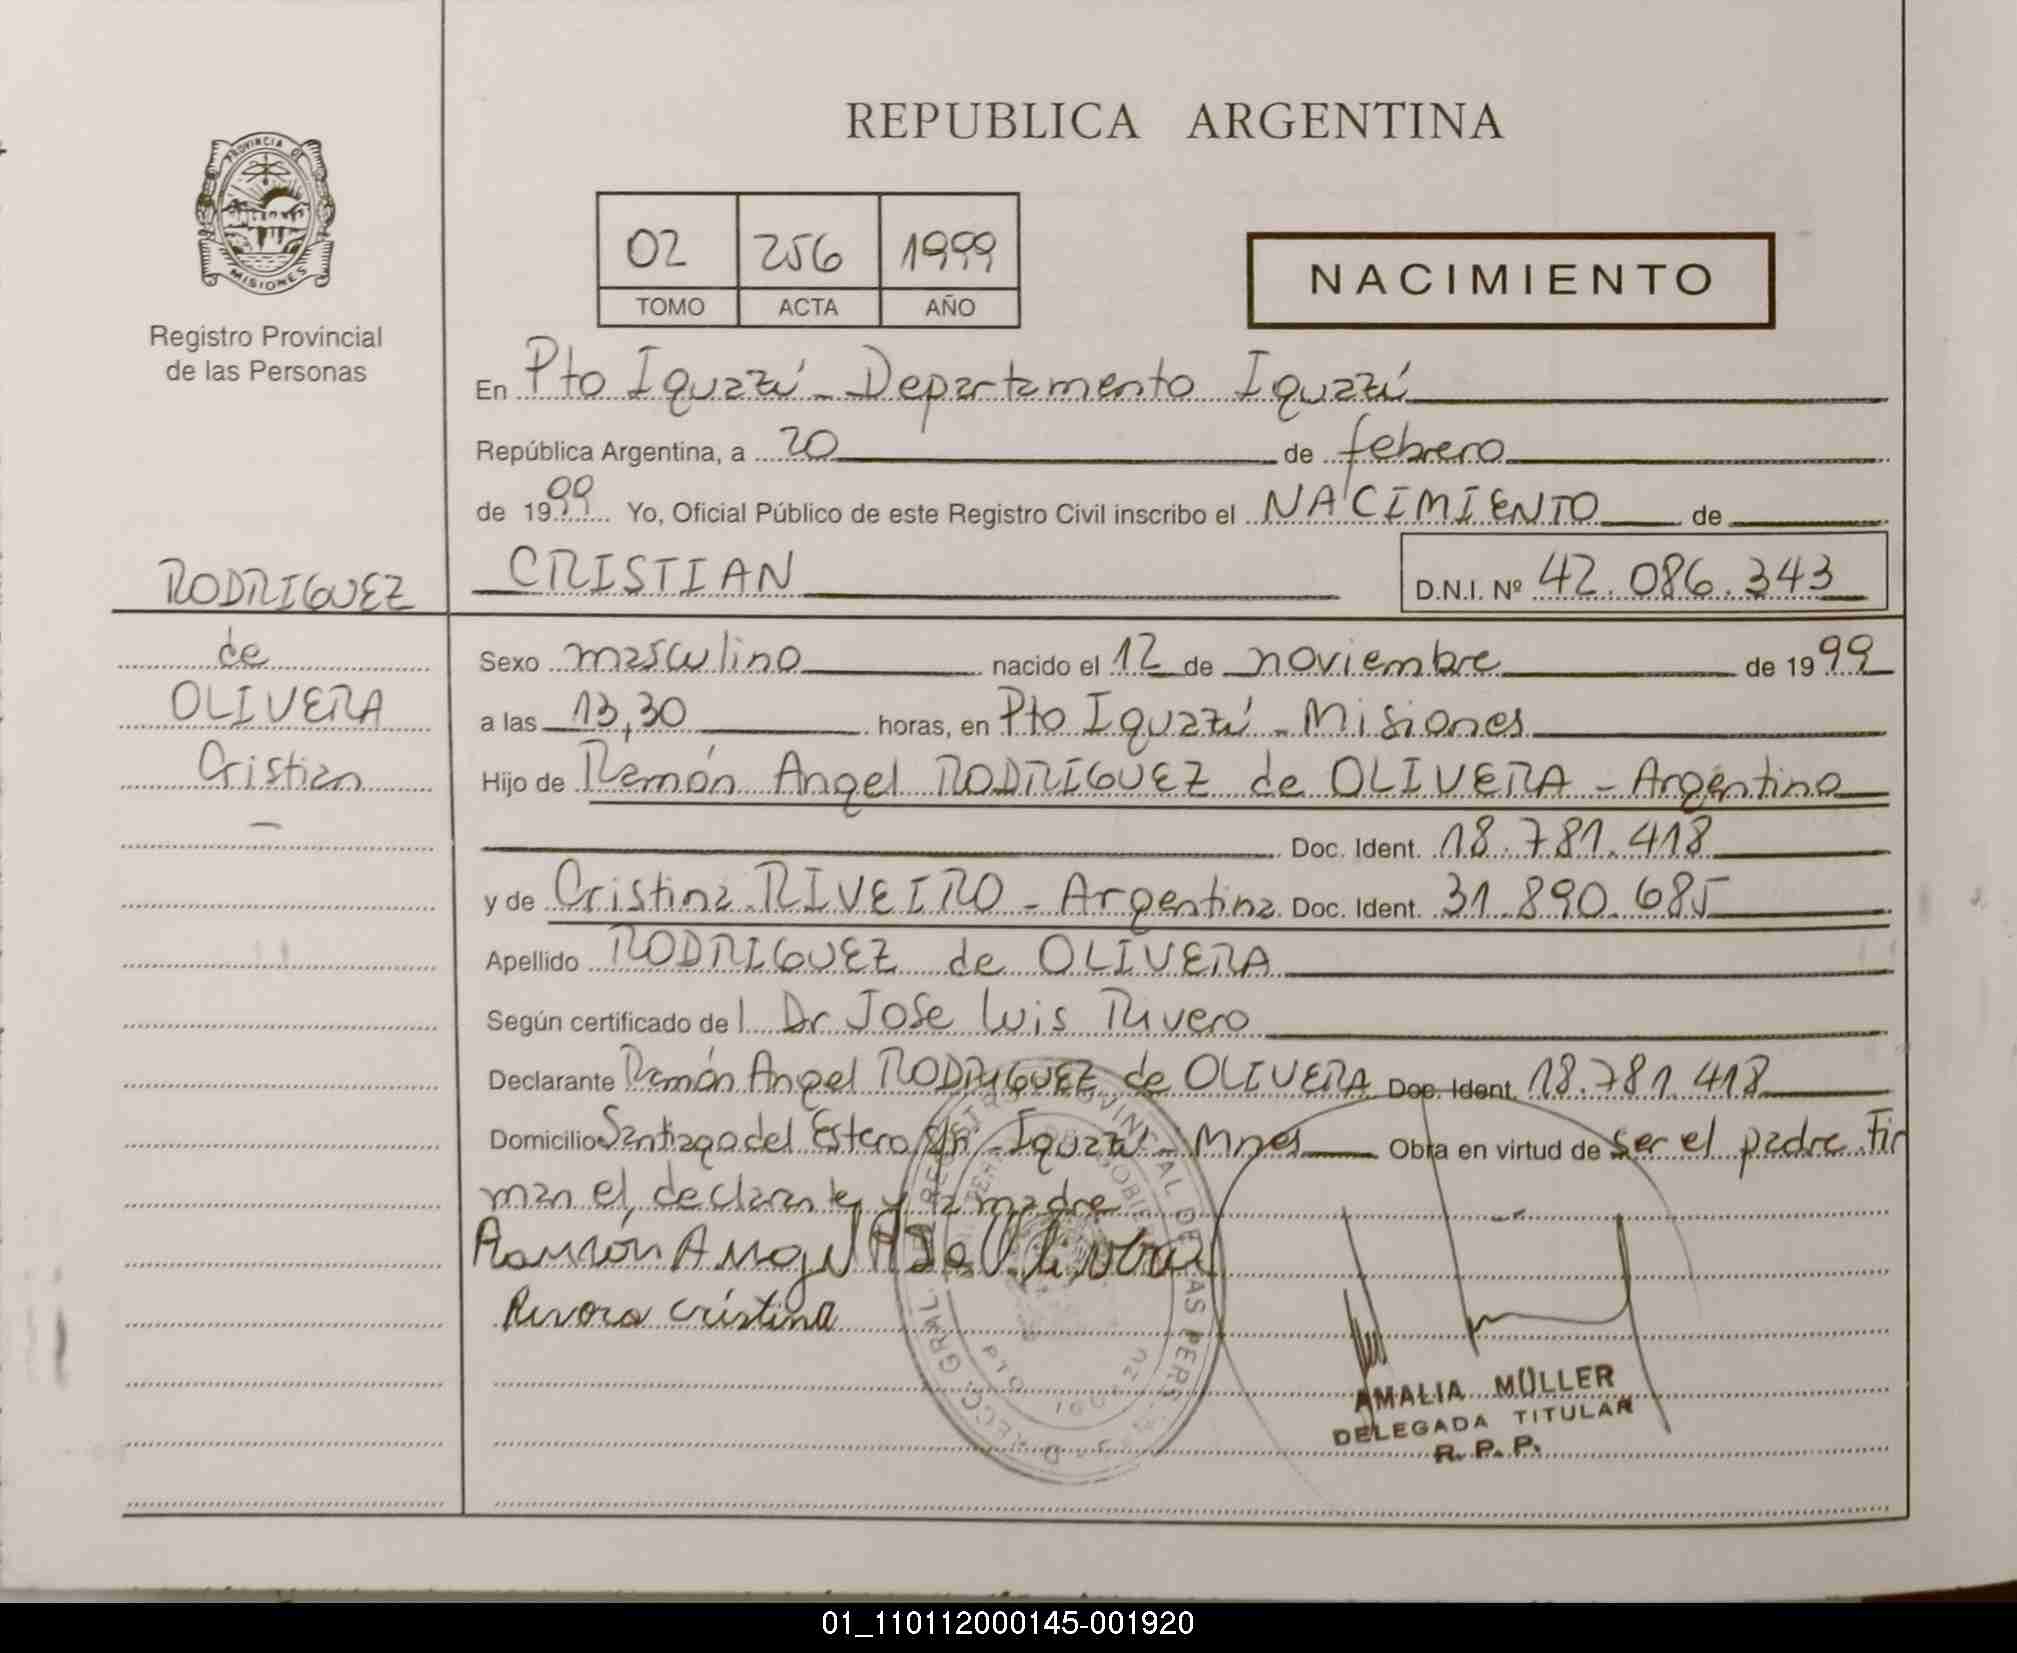 REPUBLICA ARGENTINA
PROVINCIA DE
MISIONES
Registro Provincial
de las Personas
02 256 1999
TOMO ACTA AÑO
NACIMIENTO
En Pto Iguazú - Departamento Iguazú
República Argentina, a 20 de febrero
de 1999 Yo, Oficial Público de este Registro Civil inscribo el NACIMIENTO de
CRISTIAN D.N.I. Nº 42.086.343
RODRIGUEZ
de
OLIVERA
Cristian
-
Sexo masculino nacido el 12 de noviembre de 1999
a las 13,30 horas, en Pto Iguazú - Misiones
Hijo de Ramón Angel RODRIGUEZ de OLIVERA - Argentino
Doc. Ident. 18.781.418
y de Cristina RIVEIRO - Argentina Doc. Ident. 31.890.685
Apellido RODRIGUEZ de OLIVERA
Según certificado del Dr Jose Luis Rivero
Declarante Ramón Angel RODRIGUEZ de OLIVERA Doc. Ident. 18.781.418
Domicilio Santiago del Estero S/n - Iguazú - Mnes Obra en virtud de ser el padre. Fir
man el, declarante y la madre
Ramon Angel
cristina
AMALIA MÜLLER
DELEGADA TITULAR
R. P. P.
01_110112000145-001920